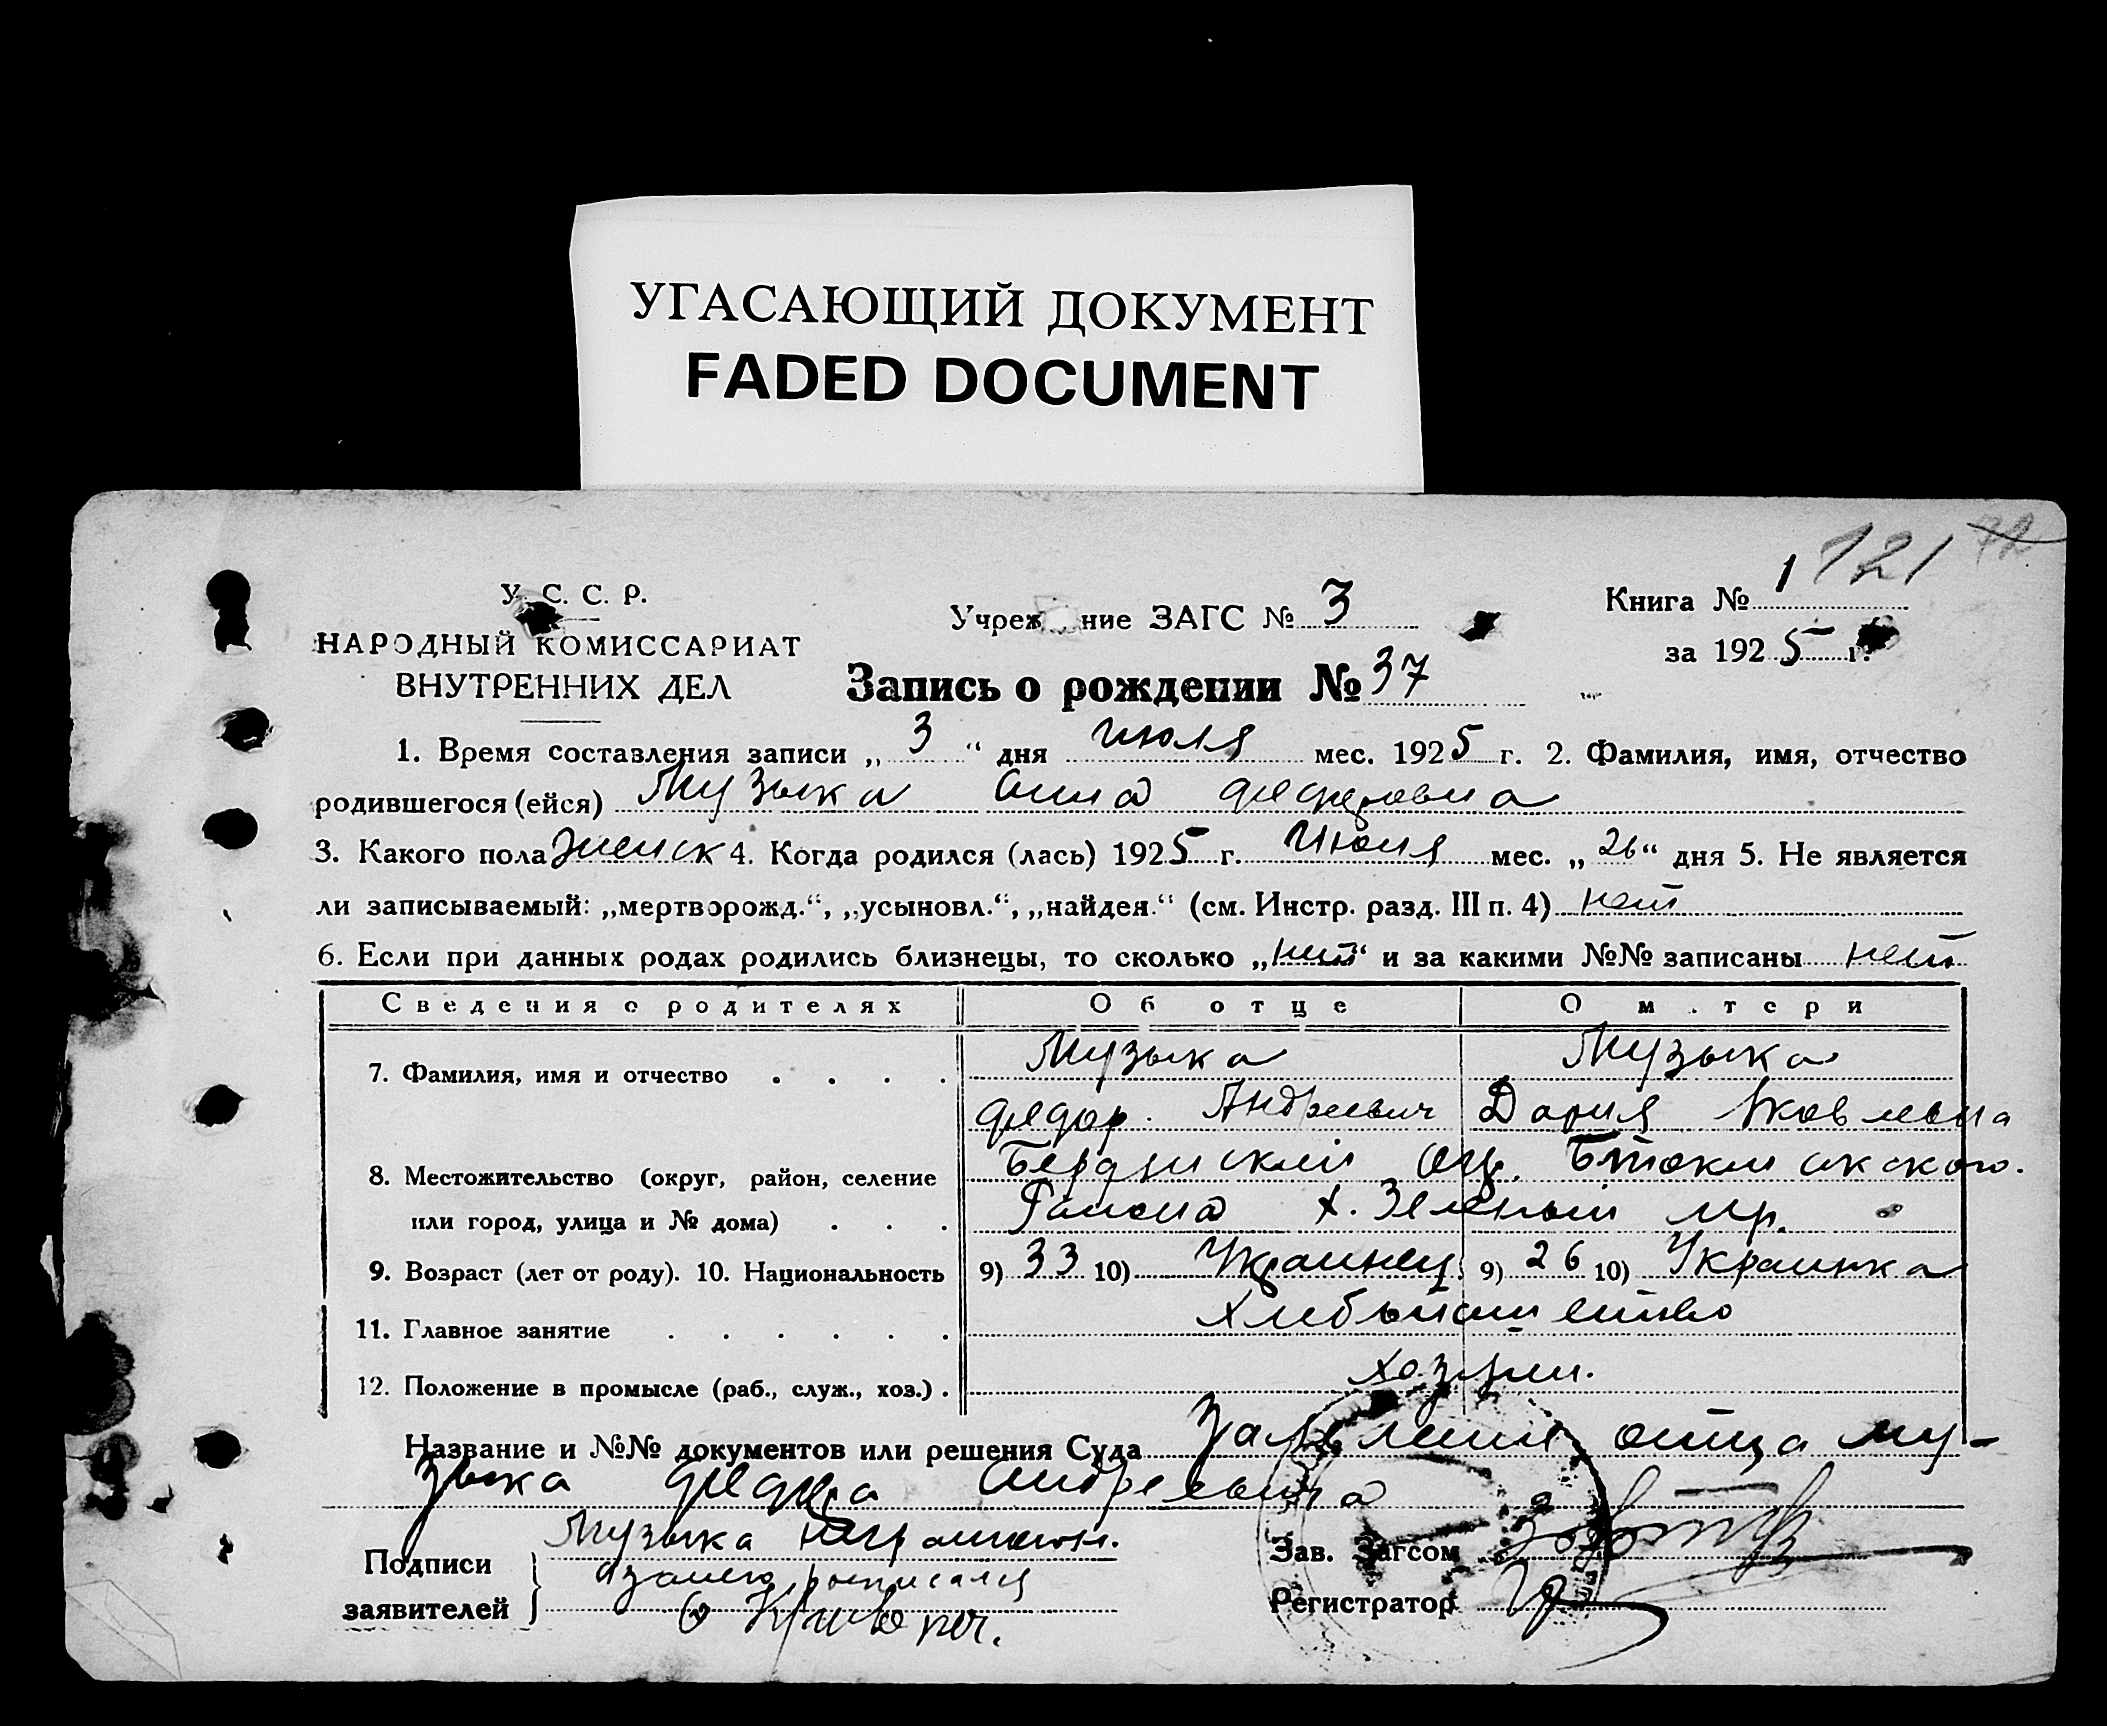 УГАСАЮЩИЙ ДОКУМЕНТ
FADED DOCUMENT
У. С. С. Р.
НАРОДНЫЙ КОМИССАРИАТ
ВНУТРЕННИХ ДЕЛ
Учреж ние ЗАГС № 3
Книга № 1 121 72
за 1925 г.
Запись о рождении № 37
1. Время составления записи „ 3 “ дня июля мес. 1925 г. 2. Фамилия, имя, отчество
родившегося (ейся) Музыка Анна Федоровна
3. Какого пола женск 4. Когда родился (лась) 1925 г. Июня мес. „ 26 “ дня 5. Не является
ли записываемый: „мертворожд.“, „усыновл.“, „найден.“ (см. Инстр. разд. III п. 4) нет
6. Если при данных родах родились близнецы, то сколько „нет“ и за какими №№ записаны нет
Сведения о родителях Об отце О м тери
7. Фамилия, имя и отчество . . . . Музыка Музыка
Федор Андреевич Дария Яковлевна
8. Местожительство (округ, район, селение
или город, улица и № дома) . . . Района х. Зеленый
9. Возраст (лет от роду). 10. Национальность 9) 33 10) Украинец 9) 26 10) Украинка
11. Главное занятие . . . . . .
12. Положение в промысле (раб., служ., хоз.) . хозяин.
Название и №№ документов или решения Суда Заявление отца Му-
зыка Федора Андреевича
Подписи заявителей Музыка
росписался
Зав. Загсом
Регистратор